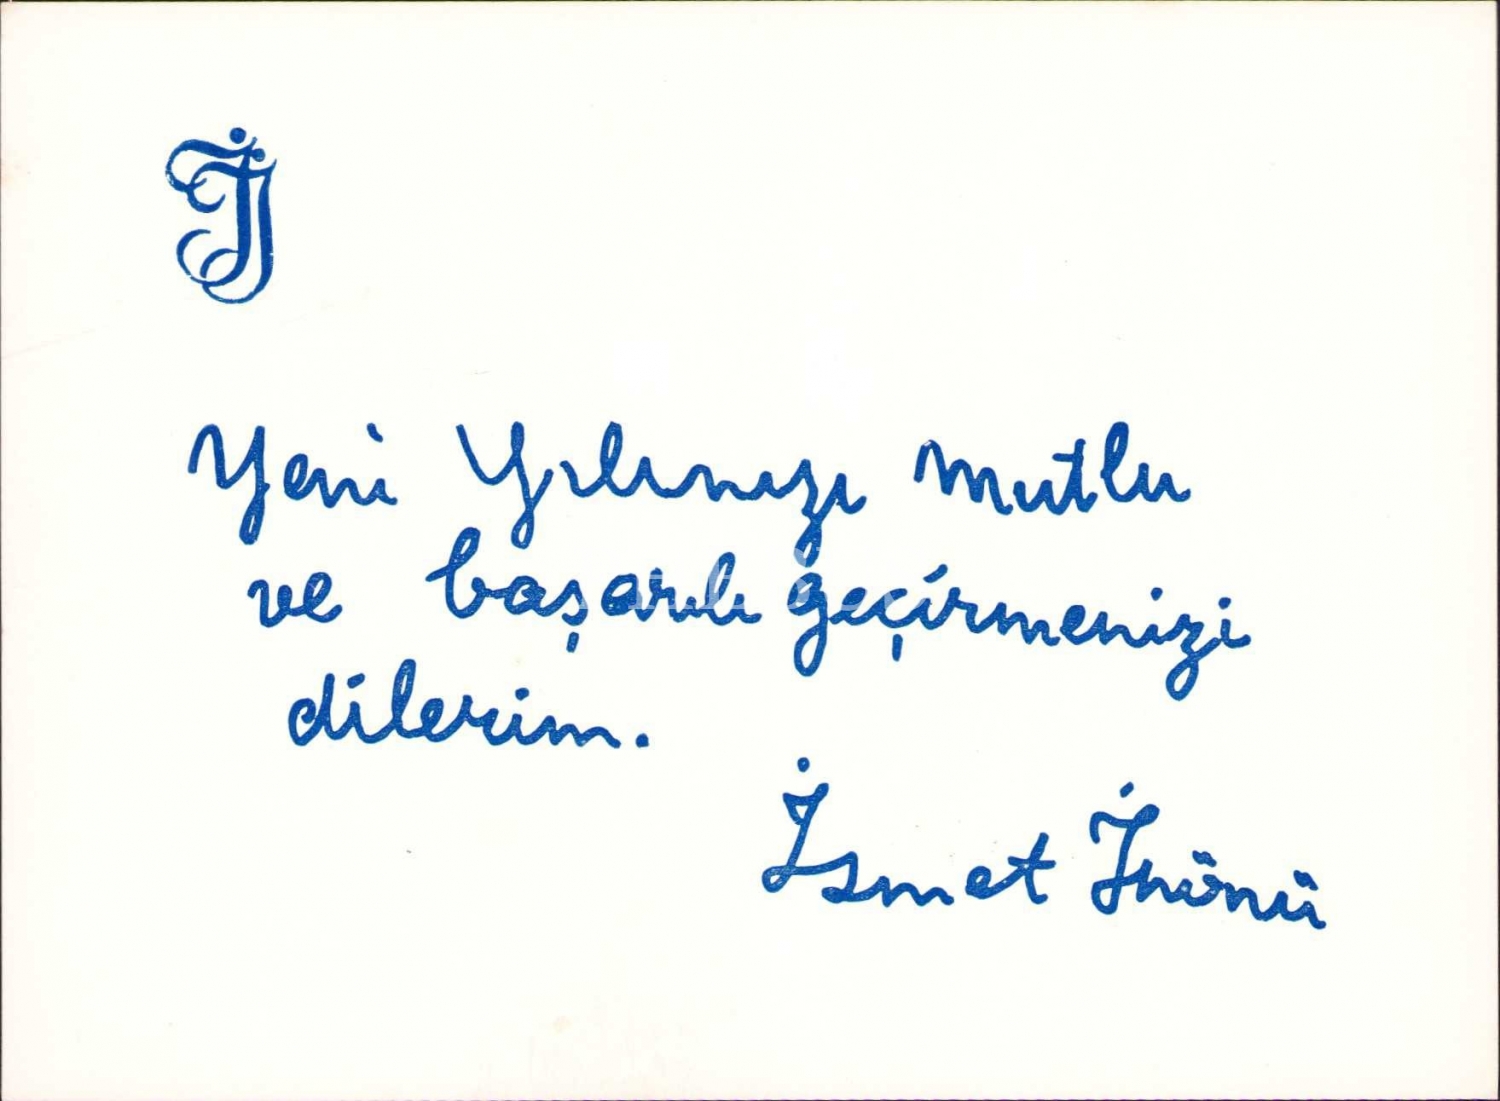 İİ
Yeni Yılınızı mutlu
ve başarılı geçirmenizi
dilerim.
İsmet İnönü